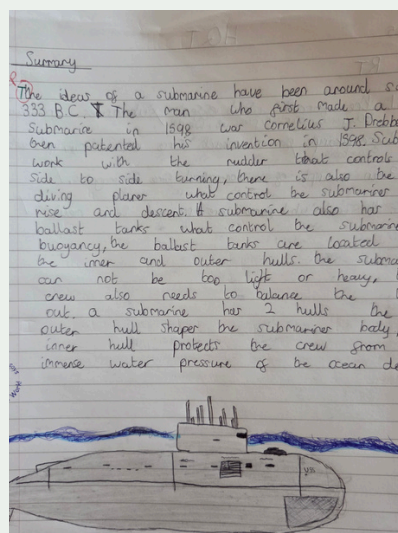 Summary
The ideas of a submarine have been around
333 B.C. The man who first made a
submarine in 1598 was Cornelius J. Drebb
then patented his invention in 1598. Sub
work with the rudder that controls
side to side turning, there is also the
diving planes what control the submarines
rise and descent. A submarine also has
ballast tanks what control the submarine
buoyancy, the ballast tanks are located
the inner and outer hulls. the subma
can not be too light or heavy,
crew also needs to balance the
out. a submarine has 2 hulls the
outer hull shapes the submarines body,
inner hull protects the crew from
immense water pressure of the ocean de